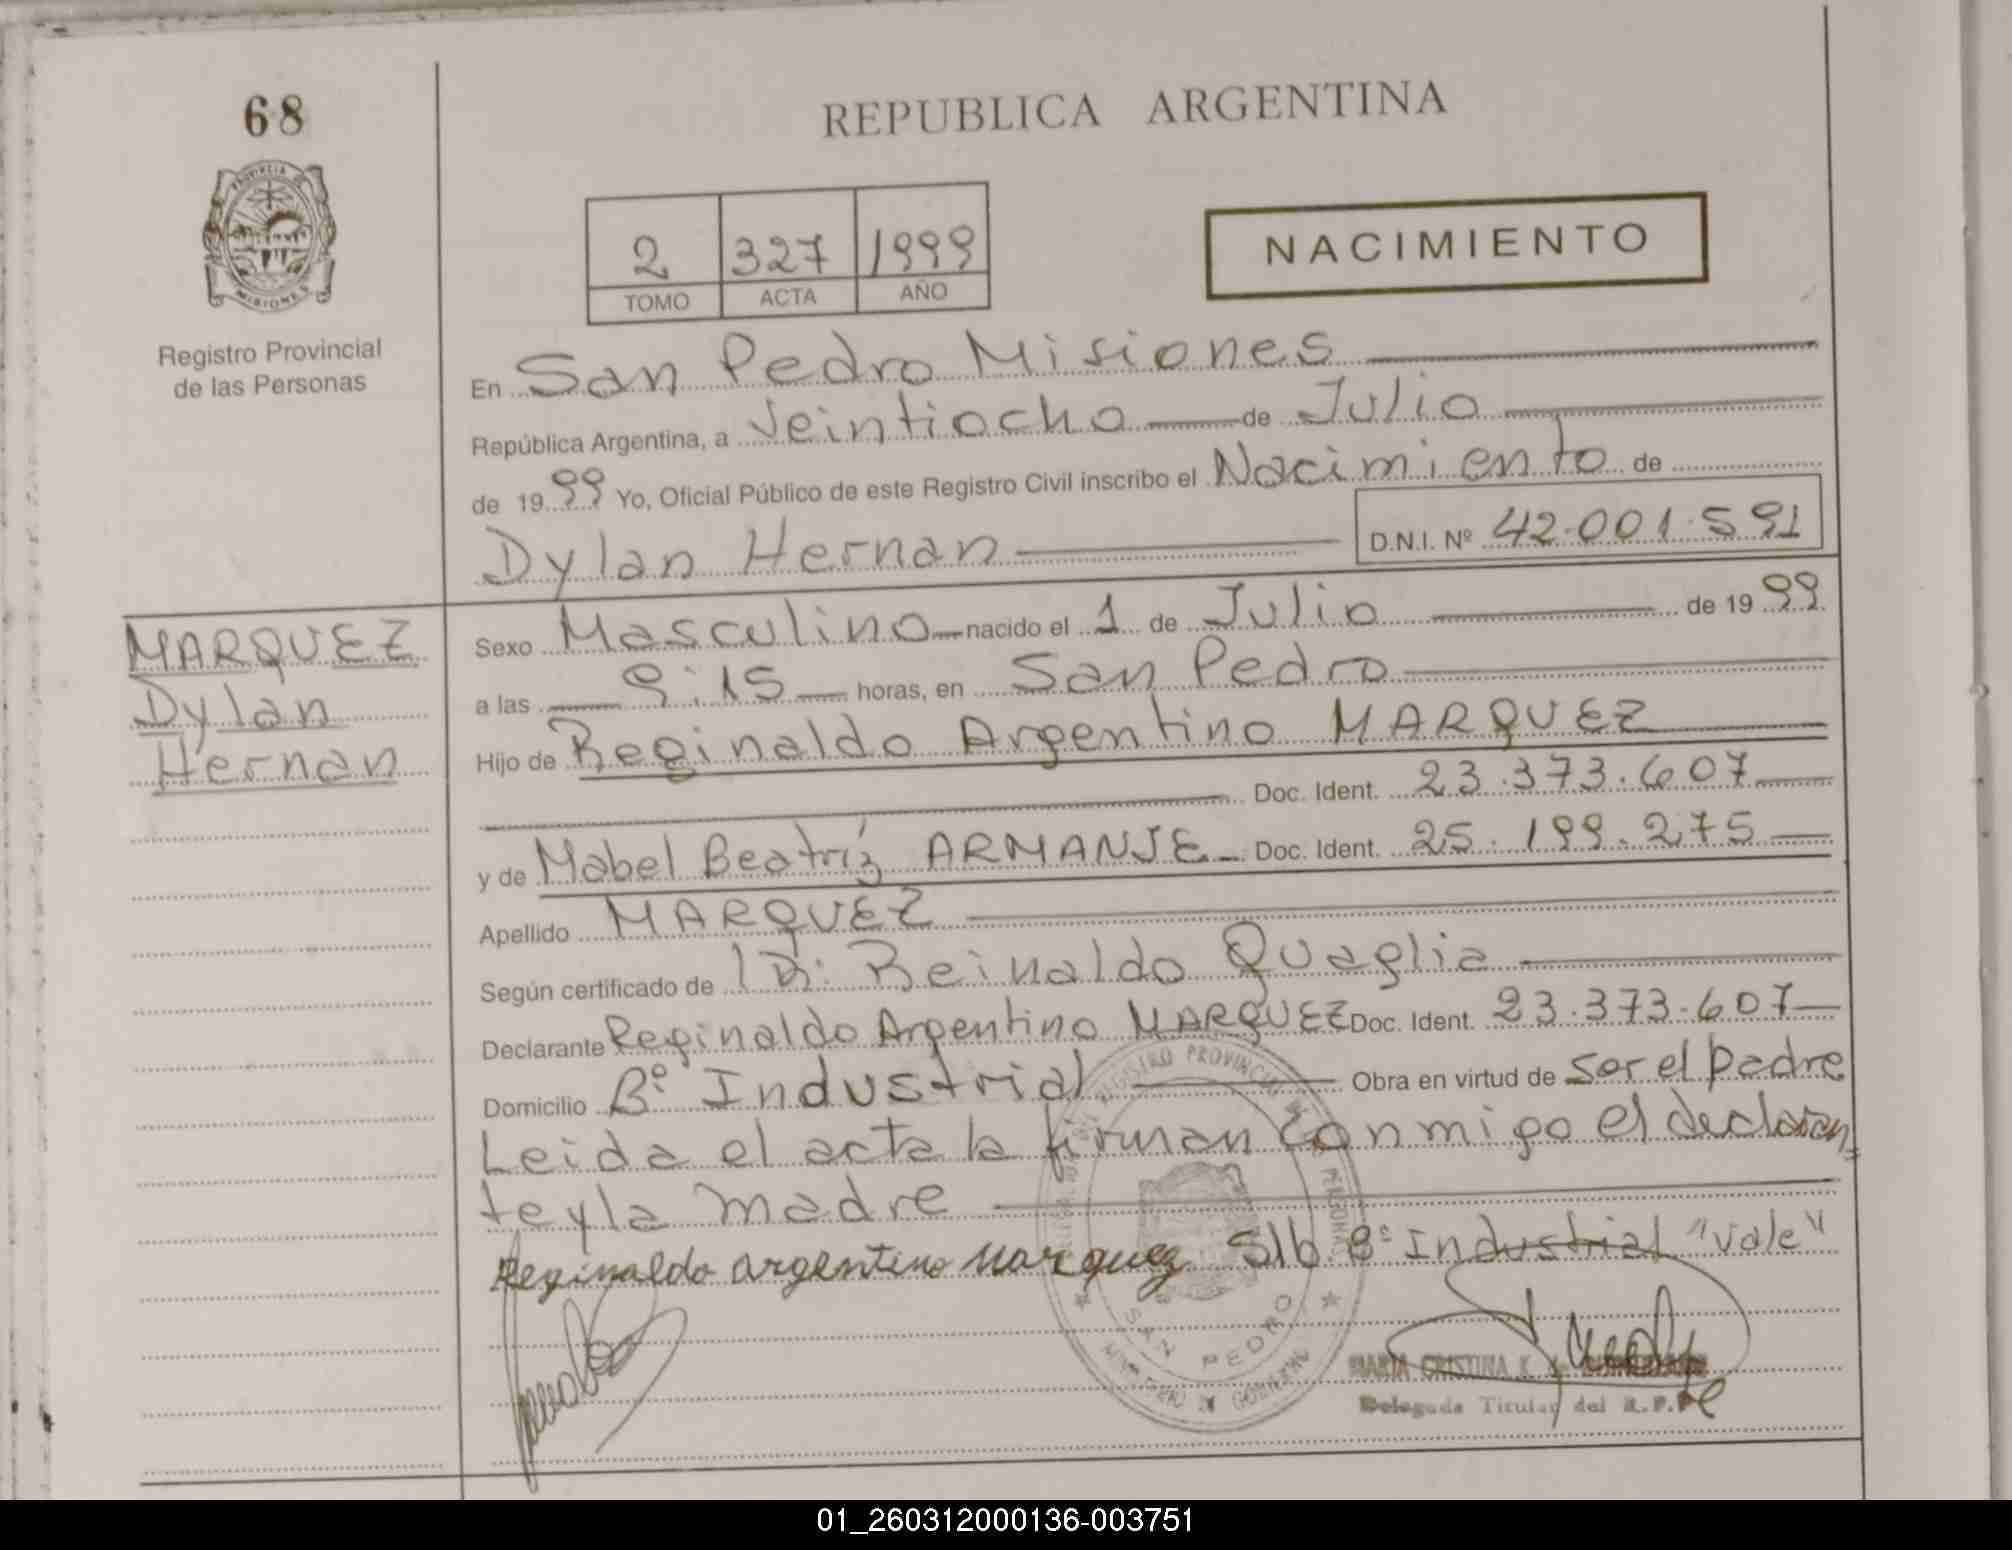 68
REPUBLICA ARGENTINA
PROVINCIA DE
MISIONES
Registro Provincial
de las Personas
2 327 1999
TOMO ACTA AÑO
NACIMIENTO
En San Pedro Misiones
República Argentina, a Veintiocho de Julio
de 1999 Yo, Oficial Público de este Registro Civil inscribo el Nacimiento de
Dylan Hernan D.N.I. Nº 42.001.591
MARQUEZ
Dylan
Hernan
Sexo Masculino nacido el 1 de Julio de 1999
a las 9:15 horas, en San Pedro
Hijo de Reginaldo Argentino MARQUEZ
Doc. Ident. 23.373.607
y de Mabel Beatríz ARMANJE Doc. Ident. 25.199.275
Apellido MARQUEZ
Según certificado de Dr. Reinaldo Quaglia
Declarante Reginaldo Argentino MARQUEZ Doc. Ident. 23.373.607
Domicilio Bº Industrial Obra en virtud de ser el padre
Leida el acta la firman conmigo el declaran
te y la madre
Reginaldo argentino Marquez S/b Bº Industrial "Vale"
REGISTRO PROVINCIAL DE
PERSONAS
SAN PEDRO
GOBIERNO
MARIA CRISTINA K.
Delegada Titular del R.P.P
01_260312000136-003751